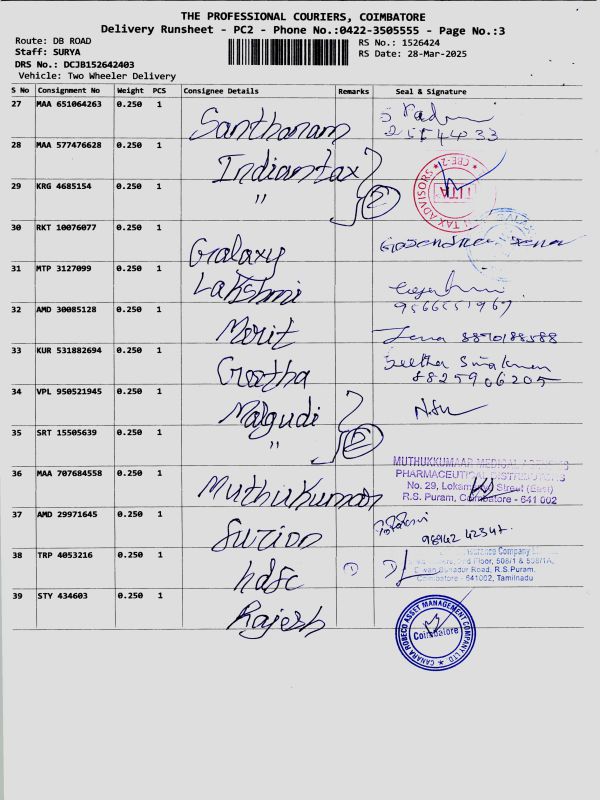 THE PROFESSIONAL COURIERS, COIMBATORE
Delivery Runsheet - PC2 - Phone No.:0422-3505555 - Page No.:3
Route: DB ROAD
RS No.: 1526424
Staff: SURYA
RS Date: 28-Mar-2025
DRS No.: DCJB152642403
Vehicle: Two Wheeler Delivery
S No Consignment No Weight PCS Consignee Details Remarks Seal & Signature
27 MAA 651064263 0.250 1 Santhanam
28 MAA 577476628 0.250 1 Indiantax
CBE-2
TAX ADVISORS
29 KRG 4685154 0.250 1 " 2
30 RKT 10076077 0.250 1 Galaxy
31 MTP 3127099 0.250 1 Lakshmi
9566551967
32 AMD 30085128 0.250 1 Morit 8870188588
33 KUR 531882694 0.250 1 Geetha
8825906205
34 VPL 950521945 0.250 1 Malgudi
35 SRT 15505639 0.250 1 " 2
36 MAA 707684558 0.250 1 Muthukumar
MUTHUKKUMAAR MEDICAL AGENCIES
PHARMACEUTICAL DISTRIBUTORS
No. 29, Street (East)
R.S. Puram, Coimbatore - 641 002
37 AMD 29971645 0.250 1
98942 42347
38 TRP 4053216 0.250 1 hdfc 1
Insurance Company
Floor, 508/1 & 508/1A,
Road, R.S.Puram,
Coimbatore - 641002, Tamilnadu
39 STY 434603 0.250 1 Rajesh
CANARA ROBECO ASSET MANAGEMENT COMPANY LTD.
Coimbatore